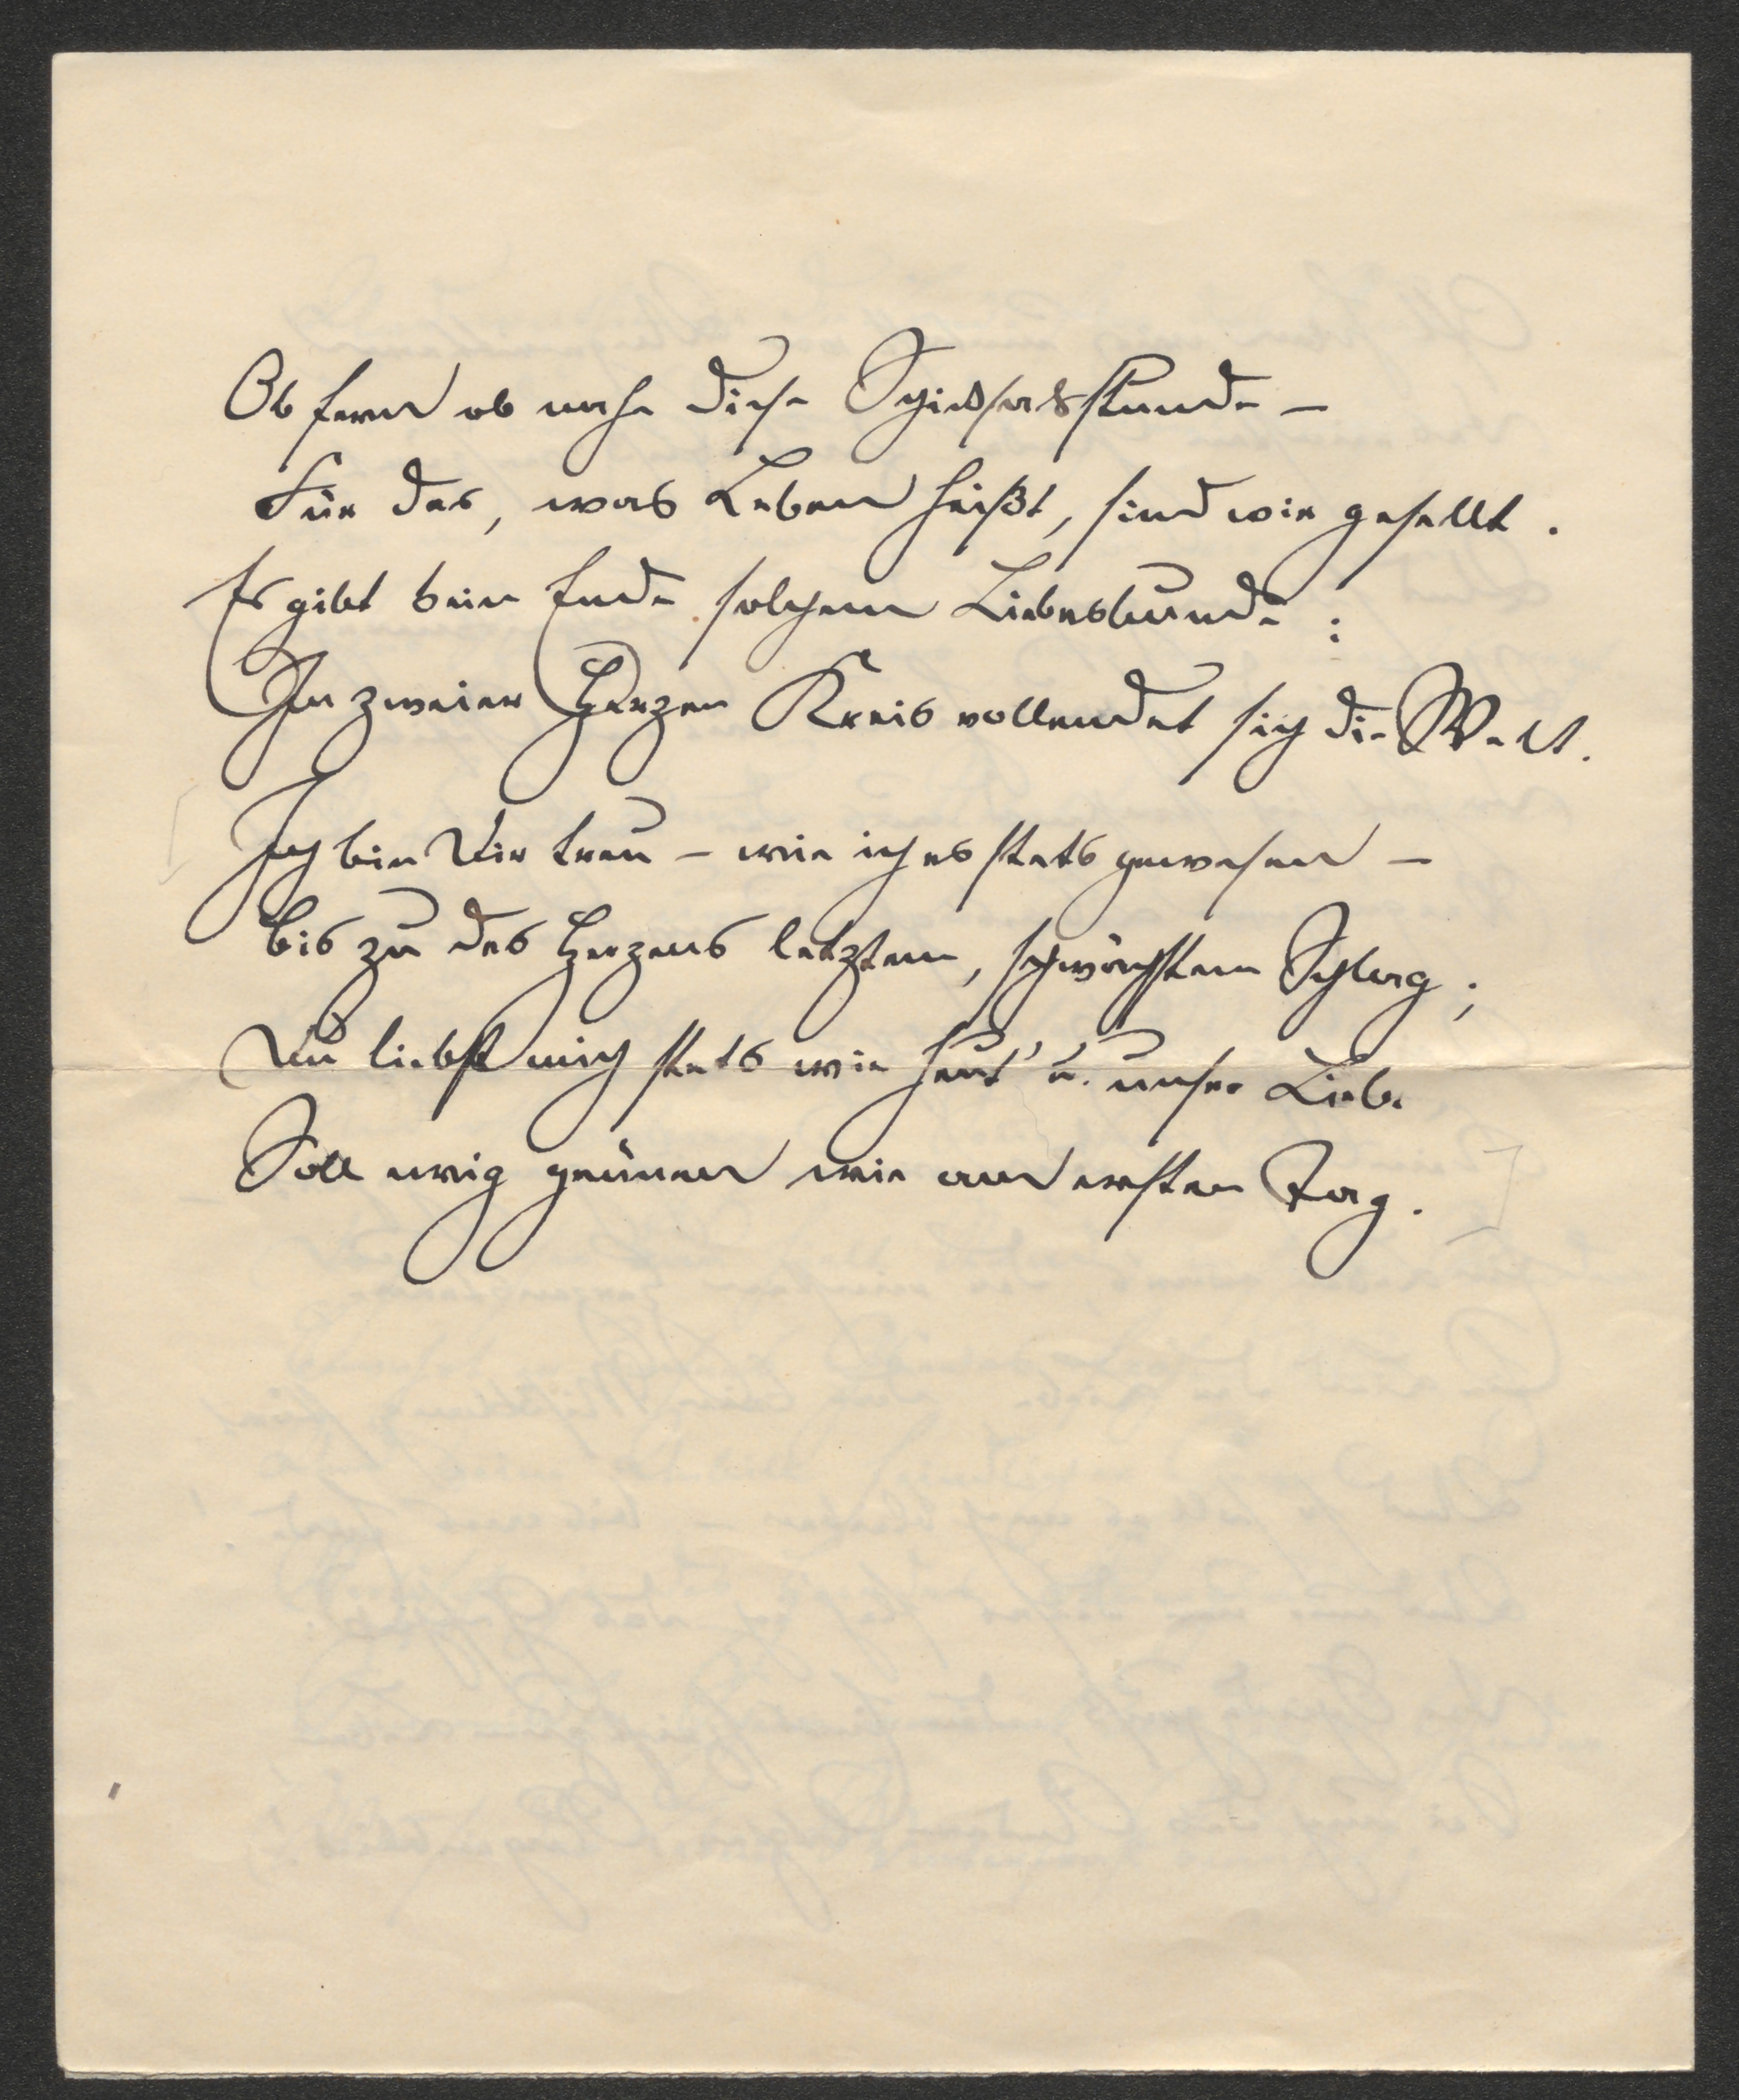 Ob fern ob nahe diese Schicksalsstunde –
Für das, was Leben heißt, sind wir gesellt.
Es gibt kein Ende solchem Liebesbunde:
In zweier Herzen Kreis vollendet sich die Welt.
Ich bin Dir treu – wie ich es stets gewesen –
bis zu des Herzens letztem, schwächstem Schlag;
Du liebst mich stets wie heut' u. unsre Liebe
Soll ewig grünen wie am ersten Tag.